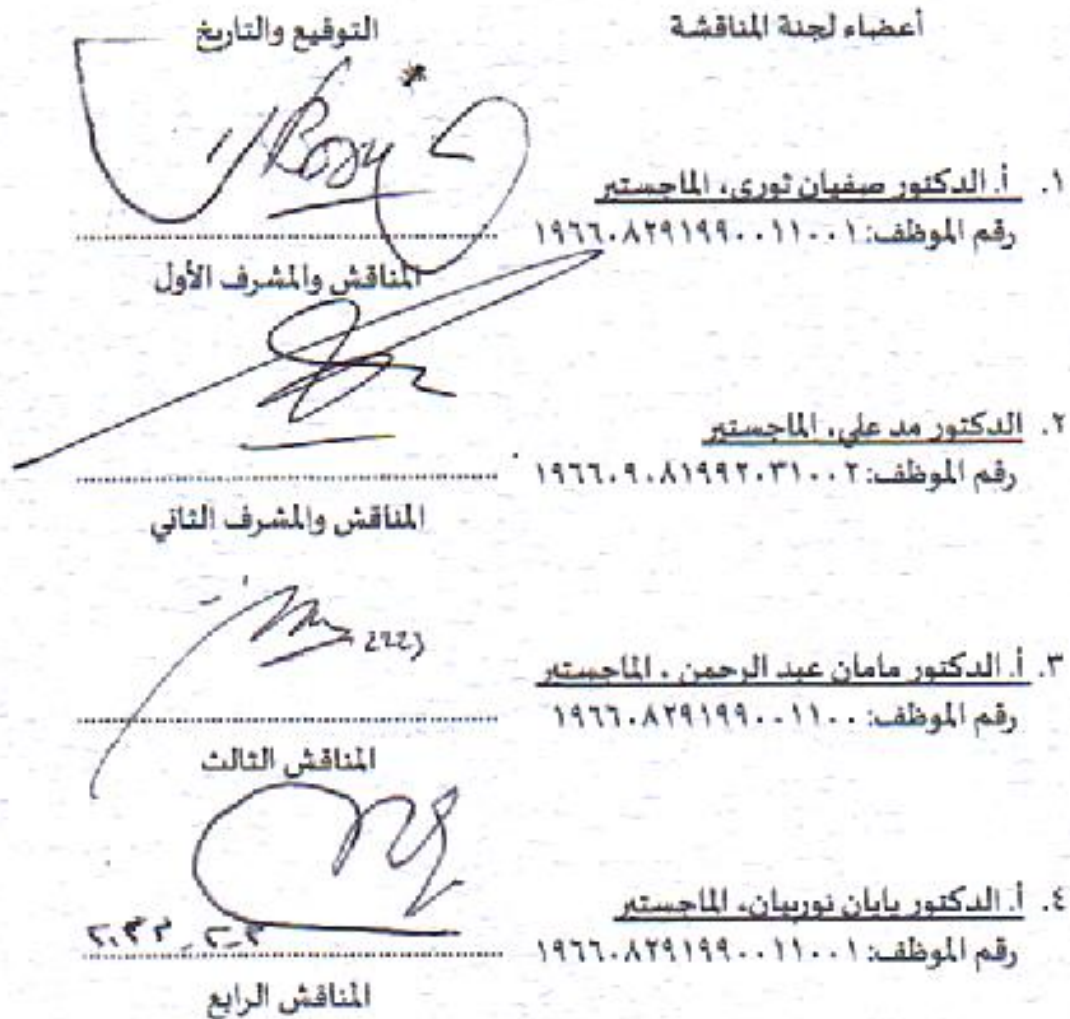 أعضاء لجنة المناقشة التوقيع والتاريخ
١. أ. الدكتور صفيان ثورى، الماجستير
رقم الموظف: ١٩٦٦٠٨٢٩١٩٩٠٠١١٠٠١
المناقش والمشرف الأول
٢. الدكتور مد علي، الماجستير
رقم الموظف: ١٩٦٦٠٩٠٨١٩٩٢٠٣١٠٠٢
المناقش والمشرف الثاني
٣. أ. الدكتور مامان عبد الرحمن ، الماجستير
رقم الموظف: ١٩٦٦٠٨٢٩١٩٩٠٠١١٠٠
المناقش الثالث
٤. أ. الدكتور يايان نوربيان، الماجستير
رقم الموظف: ١٩٦٦٠٨٢٩١٩٩٠٠١١٠٠١
المناقش الرابع